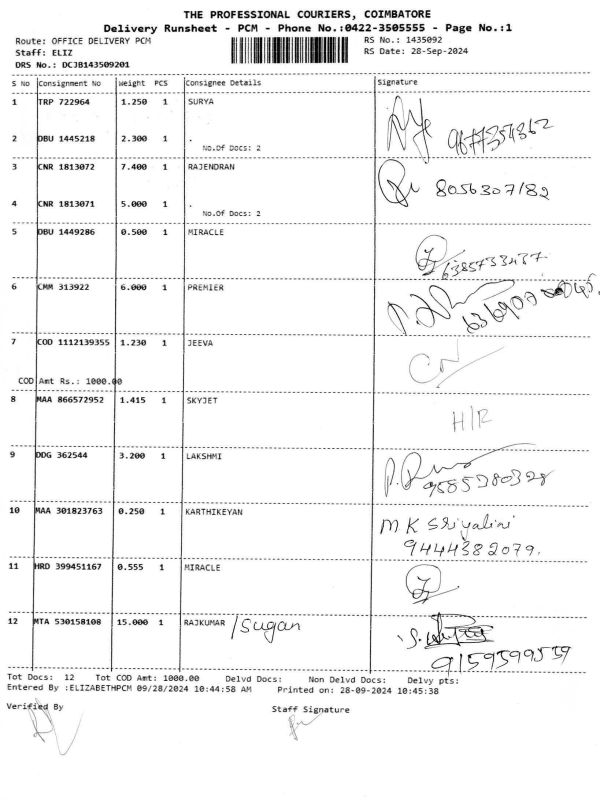 THE PROFESSIONAL COURIERS, COIMBATORE
Delivery Runsheet - PCM - Phone No.:0422-3505555 - Page No.:1
Route: OFFICE DELIVERY PCM RS No.: 1435092
Staff: ELIZ RS Date: 28-Sep-2024
DRS No.: DCJB143509201
S No Consignment No Weight PCS Consignee Details Signature
1 TRP 722964 1.250 1 SURYA
2 DBU 1445218 2.300 1 . 9677354362
No.Of Docs: 2
3 CNR 1813072 7.400 1 RAJENDRAN
8056307182
4 CNR 1813071 5.000 1 .
No.Of Docs: 2
5 DBU 1449286 0.500 1 MIRACLE
6385733437.
6 CMM 313922 6.000 1 PREMIER
7 COD 1112139355 1.230 1 JEEVA
CN
COD Amt Rs.: 1000.00
8 MAA 866572952 1.415 1 SKYJET
H/R
9 DDG 362544 3.200 1 LAKSHMI
9585380328
10 MAA 301823763 0.250 1 KARTHIKEYAN
M K Sriyalini
9444382079.
11 HRD 399451167 0.555 1 MIRACLE
12 MTA 530158108 15.000 1 RAJKUMAR /Sugan
9159599539
Tot Docs: 12 Tot COD Amt: 1000.00 Delvd Docs: Non Delvd Docs: Delvy pts:
Entered By :ELIZABETHPCM 09/28/2024 10:44:58 AM Printed on: 28-09-2024 10:45:38
Verified By Staff Signature